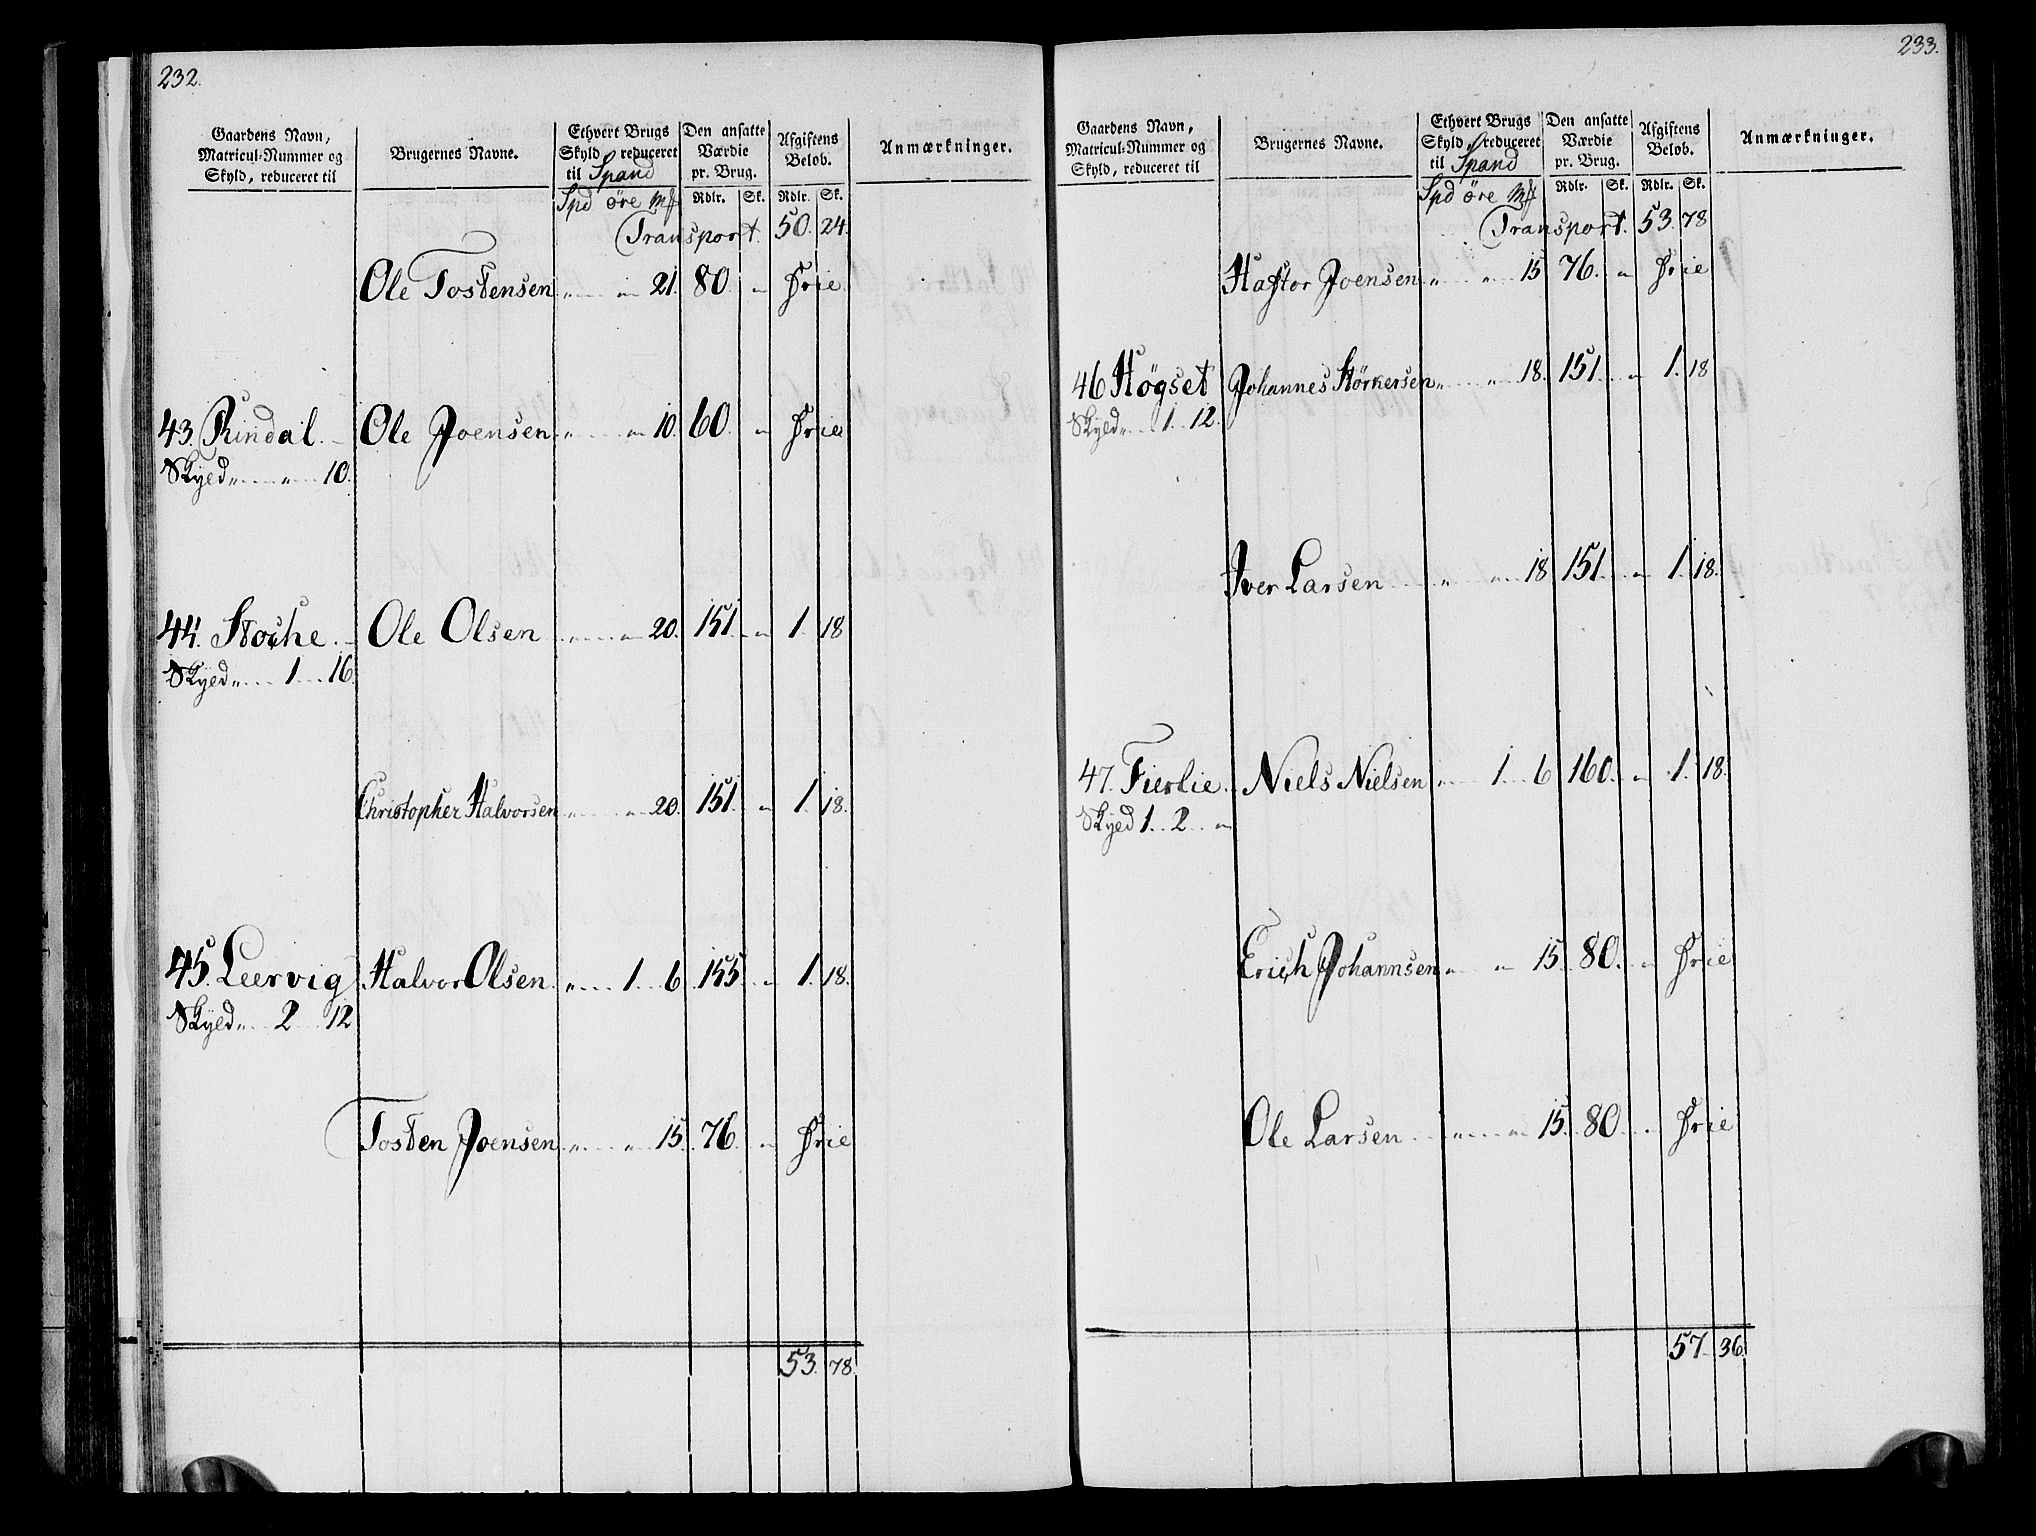 232.
Gaardens Navn, Matricul-Nummer og Skyld, reduceret til
Brugernes Navne.
Ethvert Brugs Skyld, reduceret til Spand
Den ansatte Værdie pr. Brug.
Afgiftens Beløb.
Anmærkninger.
Spd øre Mk Rdlr. Sk. Rdlr. Sk.
Transport. 50. 24.
Ole Tostensen „ „ 21. 80. „ Frie
43. Rindal. Ole Joensen „ „ 10. 60. „ Frie
Skyld „ „ 10.
44. Stoche. Ole Olsen „ „ 20. 151. „ 1. 18
Skyld „ 1 16.
Christopher Halvorsen „ „ 20. 151. „ 1. 18.
45. Leervig Halvor Olsen. „ 1 6 155 „ 1. 18.
Skyld „ 2 12
Tosten Joensen „ „ 15. 76. „ Frie
53. 78.
233.
Gaardens Navn, Matricul-Nummer og Skyld, reduceret til
Brugernes Navne.
Ethvert Brugs Skyld, reduceret til Spand
Den ansatte Værdie pr. Brug.
Afgiftens Beløb.
Anmærkninger.
Spd øre Mk Rdlr. Sk. Rdlr. Sk.
Transport. 53. 78
Haftor Joensen „ „ 15 76. „ Frie
46 Høgset Johannes Størkersen „ „ 18. 151. „ 1. 18
Skyld „ 1 12.
Iver Larsen „ „ 18 151. „ 1. 18.
47. Fierlie. Niels Nielsen „ 1 6 160. „ 1. 18.
Skyld 1 2 „
Erich Johannsen „ „ 15. 80. „ Frie
Ole Larsen „ „ 15. 80. „ Frie
57. 36.